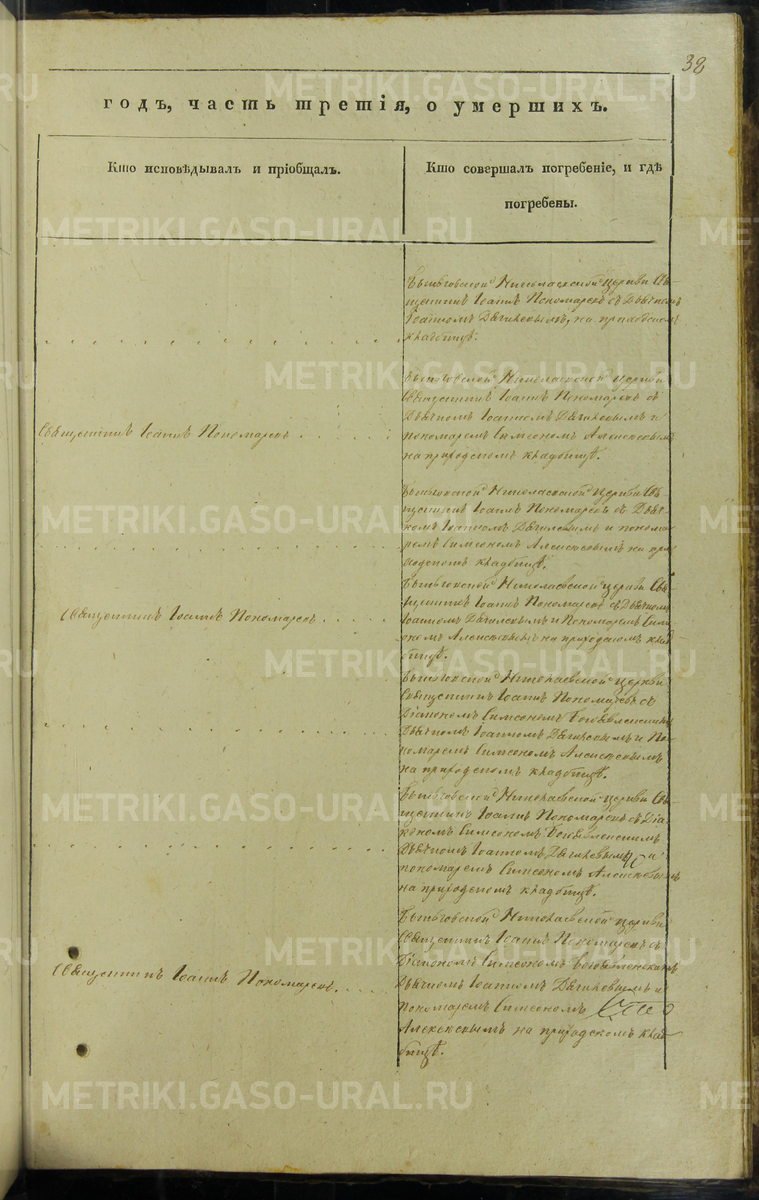 38
годъ, часть третія, о умершихъ.
Кто исповѣдывалъ и пріобщалъ.
Кто совершалъ погребеніе, и гдѣ
погребены.
Николаевской церкви Свя-
щенникъ Іоаннъ Пономаревъ съ Дьячкомъ
Іоанномъ на приходскомъ
кладбищѣ.
Священникъ Іоаннъ Пономаревъ
Николаевской церкви
Священникъ Іоаннъ Пономаревъ съ
Дьячкомъ Іоанномъ и
пономаремъ Симеономъ Алексѣевымъ
на приходскомъ кладбищѣ.
Николаевской церкви Свя-
щенникъ Іоаннъ Пономаревъ съ Дьяч-
комъ Іоанномъ и понома-
ремъ Симеономъ Алексѣевымъ на при-
ходскомъ кладбищѣ.
Священникъ Іоаннъ Пономаревъ
Николаевской церкви Свя-
щенникъ Іоаннъ Пономаревъ съ Дьячкомъ
Іоанномъ и Пономаремъ Симе-
ономъ Алексѣевымъ на приходскомъ клад-
бищѣ.
Николаевской церкви
Священникъ Іоаннъ Пономаревъ съ
Діакономъ Симеономъ
Дьячкомъ Іоанномъ и По-
номаремъ Симеономъ Алексѣевымъ
на приходскомъ кладбищѣ.
Николаевской церкви Свя-
щенникъ Іоаннъ Пономаревъ съ Діа-
кономъ Симеономъ
Дьячкомъ Іоанномъ и
пономаремъ Симеономъ Алексѣевымъ
на приходскомъ кладбищѣ.
Священникъ Іоаннъ Пономаревъ
Николаевской церкви
Священникъ Іоаннъ Пономаревъ съ
Діакономъ Симеономъ
Дьячкомъ Іоанномъ и
пономаремъ Симеономъ
Алексѣевымъ на приходскомъ клад-
бищѣ.
METRIKI.GASO-URAL.RU